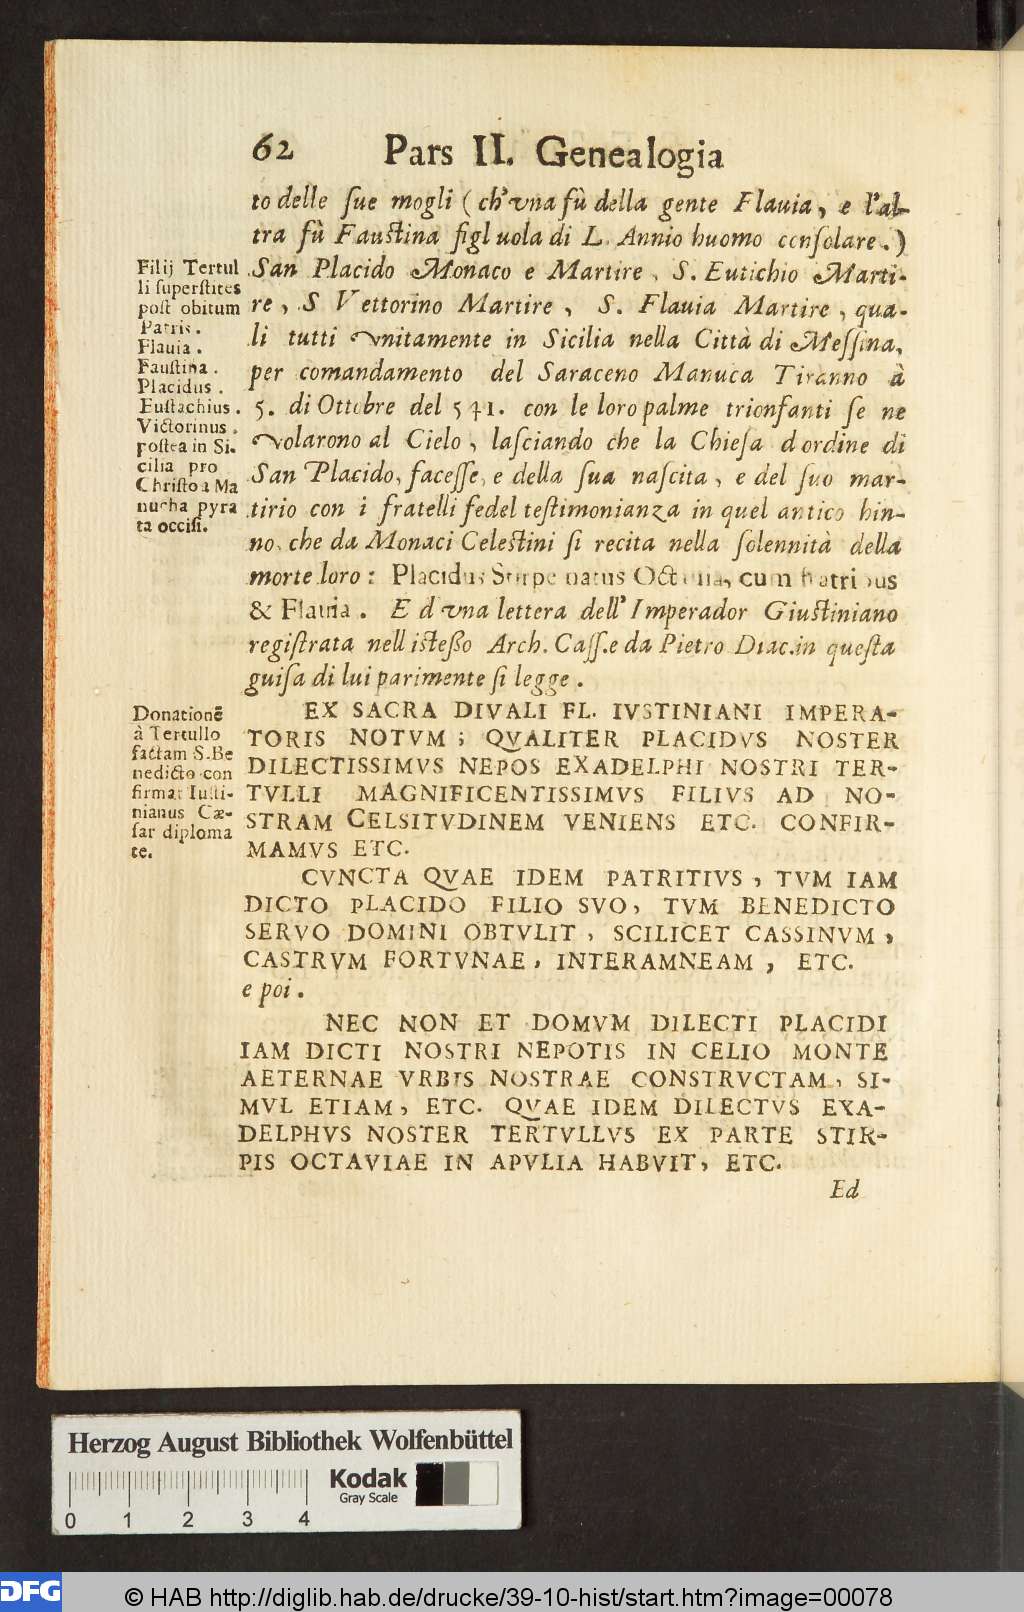 62 Pars II. Genealogia
to delle ſue mogli ( ch'vna fù della gente Flauia, e l'al-
tra fù Fauſtina figluola di L. Annio huomo conſolare. )
San Placido Monaco e Martire, S. Eutichio Marti-
re, S Vettorino Martire, S. Flauia Martire, qua-
li tutti vnitamente in Sicilia nella Città di Meſſina,
per comandamento del Saraceno Manuca Tiranno à
5. di Ottobre del 541. con le loro palme trionfanti ſe ne
volarono al Cielo, laſciando che la Chieſa d ordine di
San Placido, faceſſe, e della ſua naſcita, e del ſuo mar-
tirio con i fratelli fedel teſtimonianza in quel antico hin-
no, che da Monaci Celeſtini ſi recita nella ſolennità della
morte loro: Placidus Stirpe natus Octauia, cum fratribus
& Flauia. E d vna lettera dell' Imperador Giuſtiniano
regiſtrata nell iſteßo Arch. Caſſ.e da Pietro Diac.in queſta
guiſa di lui parimente ſi legge.
Filij Tertul
li ſuperſtites
poſt obitum
Patris.
Flauia.
Fauſtina.
Placidus.
Euſtachius.
Victorinus.
poſtea in Si-
cilia pro
Chriſto a Ma
nucha pyra
ta occiſi.
EX SACRA DIVALI FL. IVSTINIANI IMPERA-
TORIS NOTVM; QVALITER PLACIDVS NOSTER
DILECTISSIMVS NEPOS EXADELPHI NOSTRI TER-
TVLLI MAGNIFICENTISSIMVS FILIVS AD NO-
STRAM CELSITVDINEM VENIENS ETC. CONFIR-
MAMVS ETC.
Donationē
à Tertullo
factam S.Be
nedicto con
firmat Iuſti-
nianus Cæ-
ſar diploma
te.
CVNCTA QVAE IDEM PATRITIVS, TVM IAM
DICTO PLACIDO FILIO SVO, TVM BENEDICTO
SERVO DOMINI OBTVLIT, SCILICET CASSINVM,
CASTRVM FORTVNAE, INTERAMNEAM, ETC.
e poi.
NEC NON ET DOMVM DILECTI PLACIDI
IAM DICTI NOSTRI NEPOTIS IN CELIO MONTE
AETERNAE VRBIS NOSTRAE CONSTRVCTAM, SI-
MVL ETIAM, ETC. QVAE IDEM DILECTVS EXA-
DELPHVS NOSTER TERTVLLVS EX PARTE STIR-
PIS OCTAVIAE IN APVLIA HABVIT, ETC.
Ed
Herzog August Bibliothek Wolfenbüttel
Kodak
Gray Scale
0 1 2 3 4
DFG
© HAB http://diglib.hab.de/drucke/39-10-hist/start.htm?image=00078